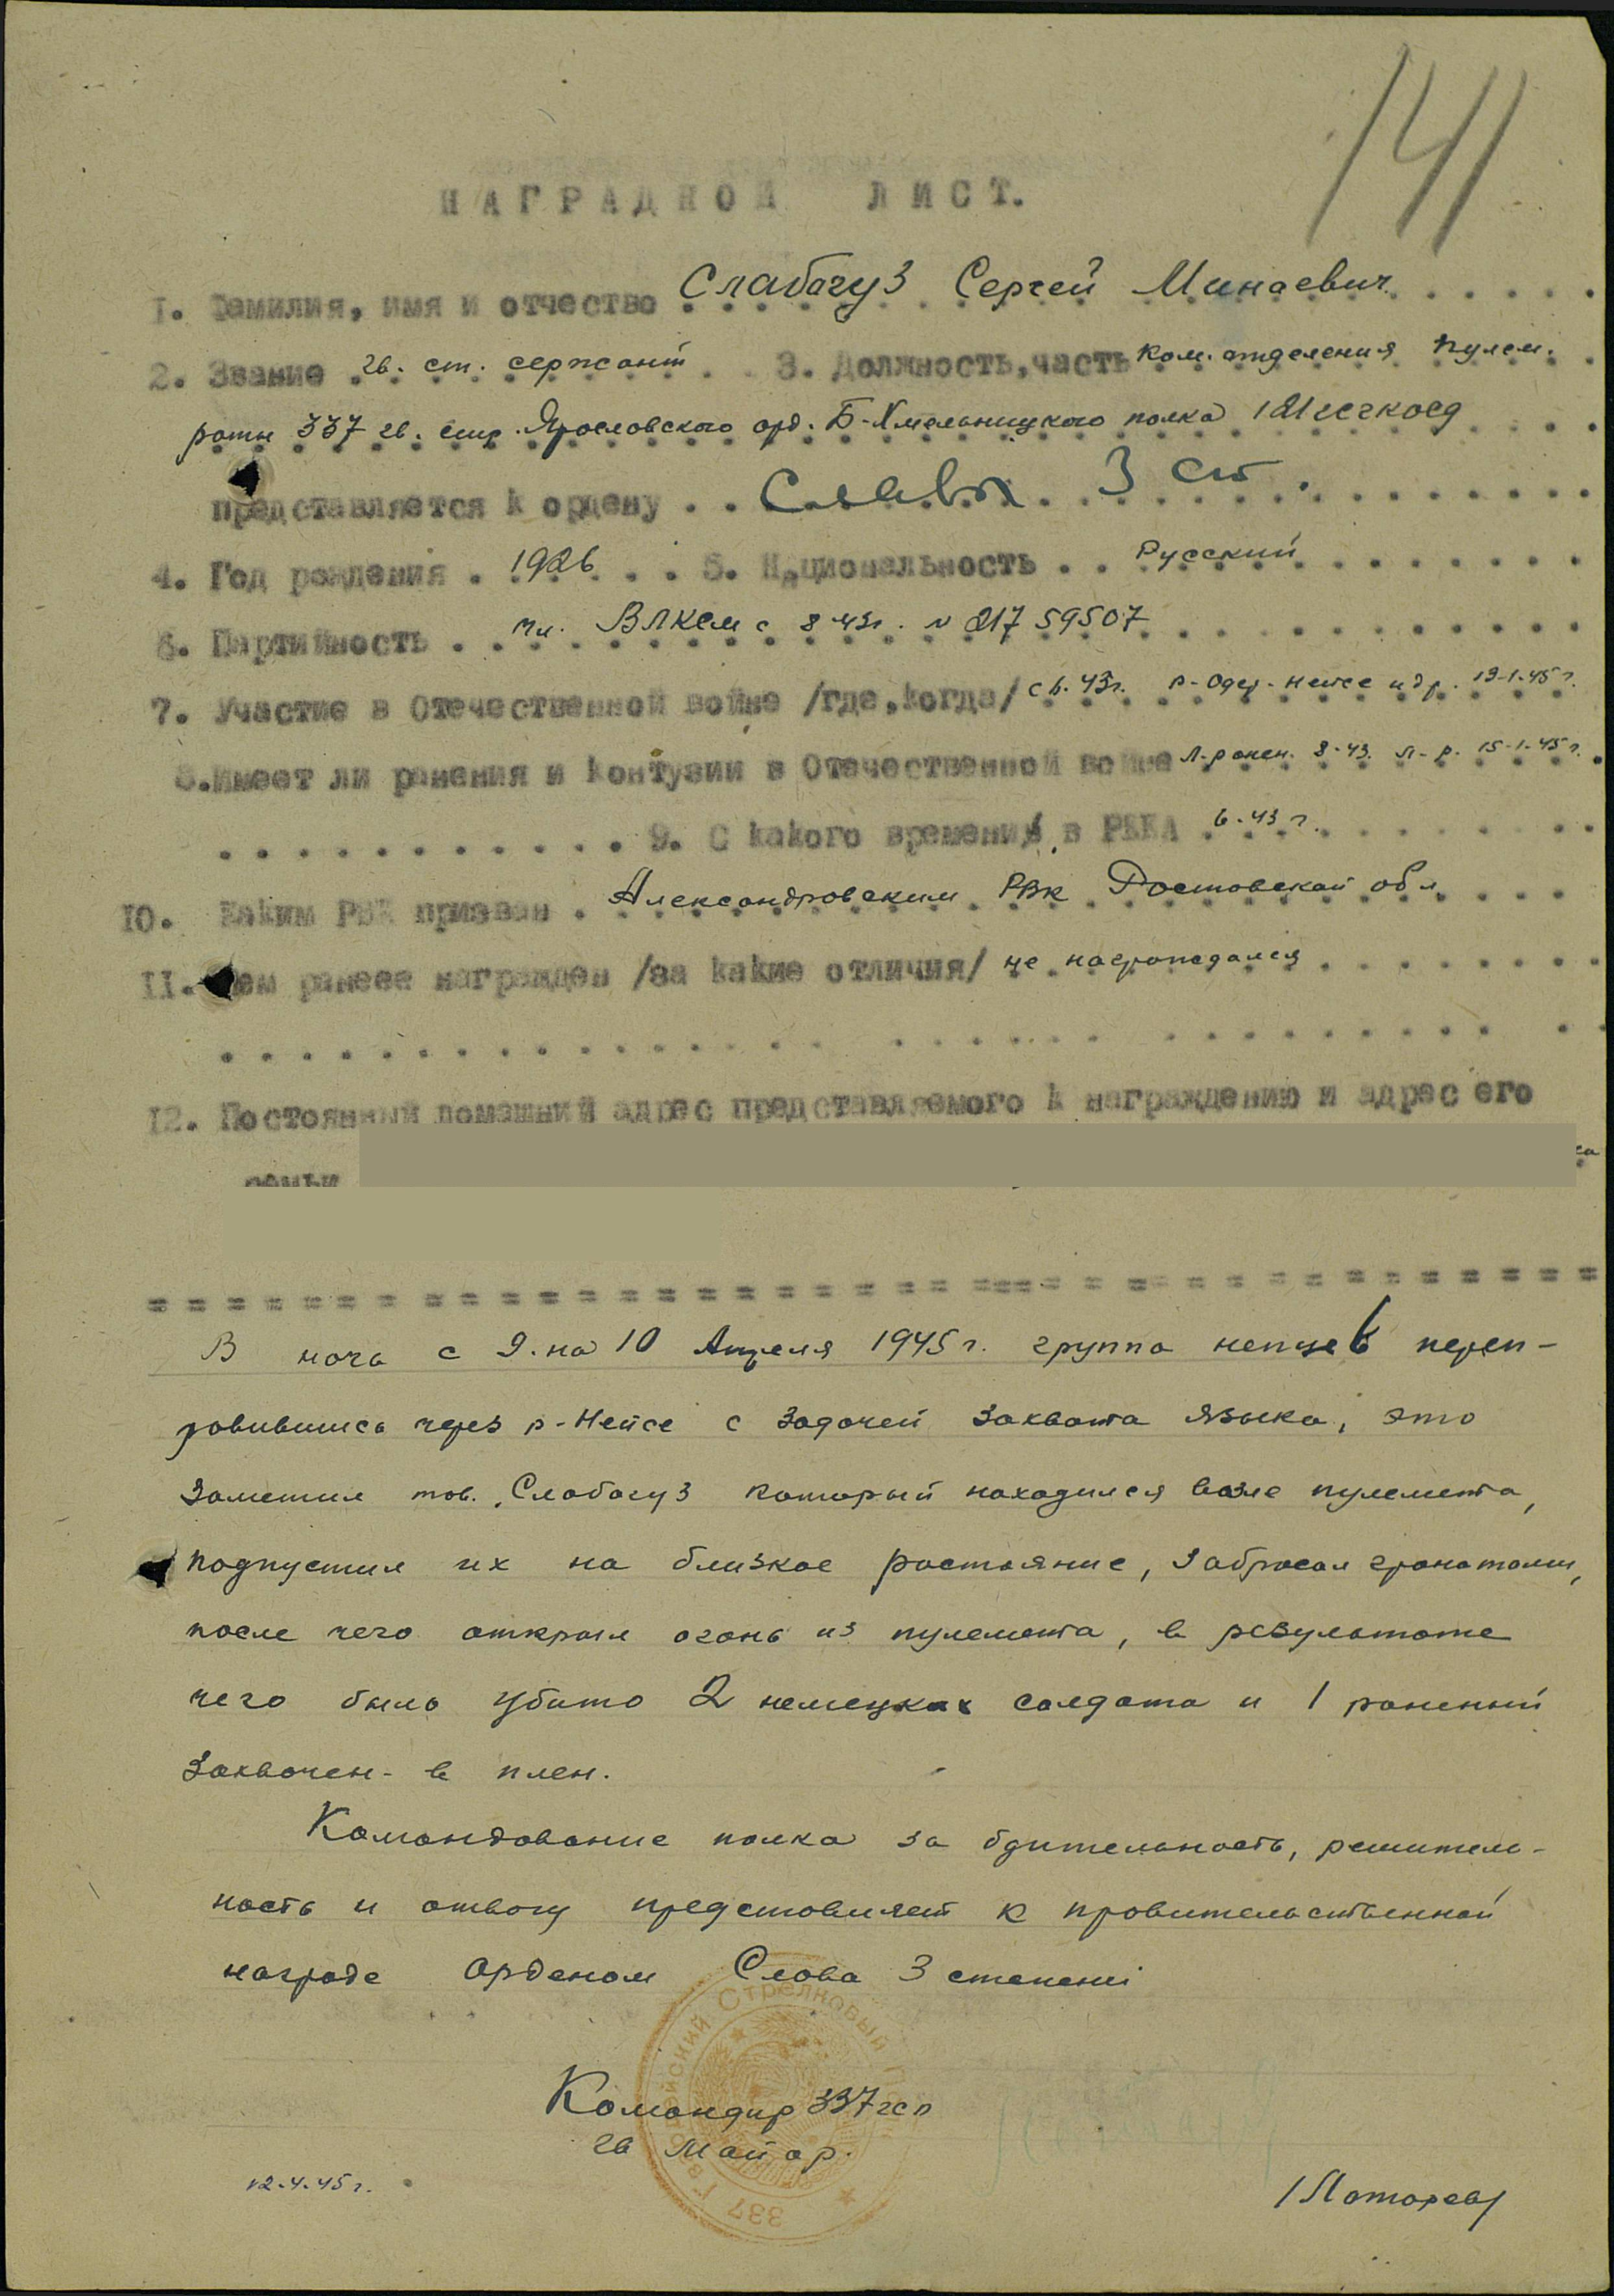 141
НАГРАДНОЙ ЛИСТ.
1. Фамилия, имя и отчество Слабогуз Сергей Минаевич
2. Звание гв. ст. сержант 3. Должность, часть ком. отделения пулем.
роты 337 гв. стр. Ярославского орд. Б-Хмельницкого полка 121 гсгкосд
представляется к ордену Славы 3 ст.
4. Год рождения 1926 5. Национальность Русский
6. Партийность чл. ВЛКСМ с 8 43г. N 21759507
7. Участие в Отечественной войне /где, когда/ с 6.43г. р-Одер-Нейсе и др. 19-1-45г.
8. Имеет ли ранения и контузии в Отечественной войне Л-ранен. 8-43. Л-р. 15-1-45г.
9. С какого времени в РККА 6-43г.
10. Каким РВК призван Александровским РВК Ростовской обл
11. Чем ранее награжден /за какие отличия/ не награждался
12. Постоянный домашний адрес представляемого к награждению и адрес его
семьи
В ночь с 9 на 10 Апреля 1945г. группа немцев переп-
равившись через р-Нейсе с задачей захвата языка, это
заметил тов. Слабогуз который находился возле пулемета,
подпустил их на близкое растояние, забросал гранатами,
после чего открыл огонь из пулемета, в результате
чего было убито 2 немецких солдата и 1 раненый
захвачен- в плен.
Командование полка за бдительность, решитель-
ность и отвагу представляет к правительственной
награде орденом Слава 3 степени
Командир 337 гсп
гв Майор.
12.4.45г.
Стрелковый
337